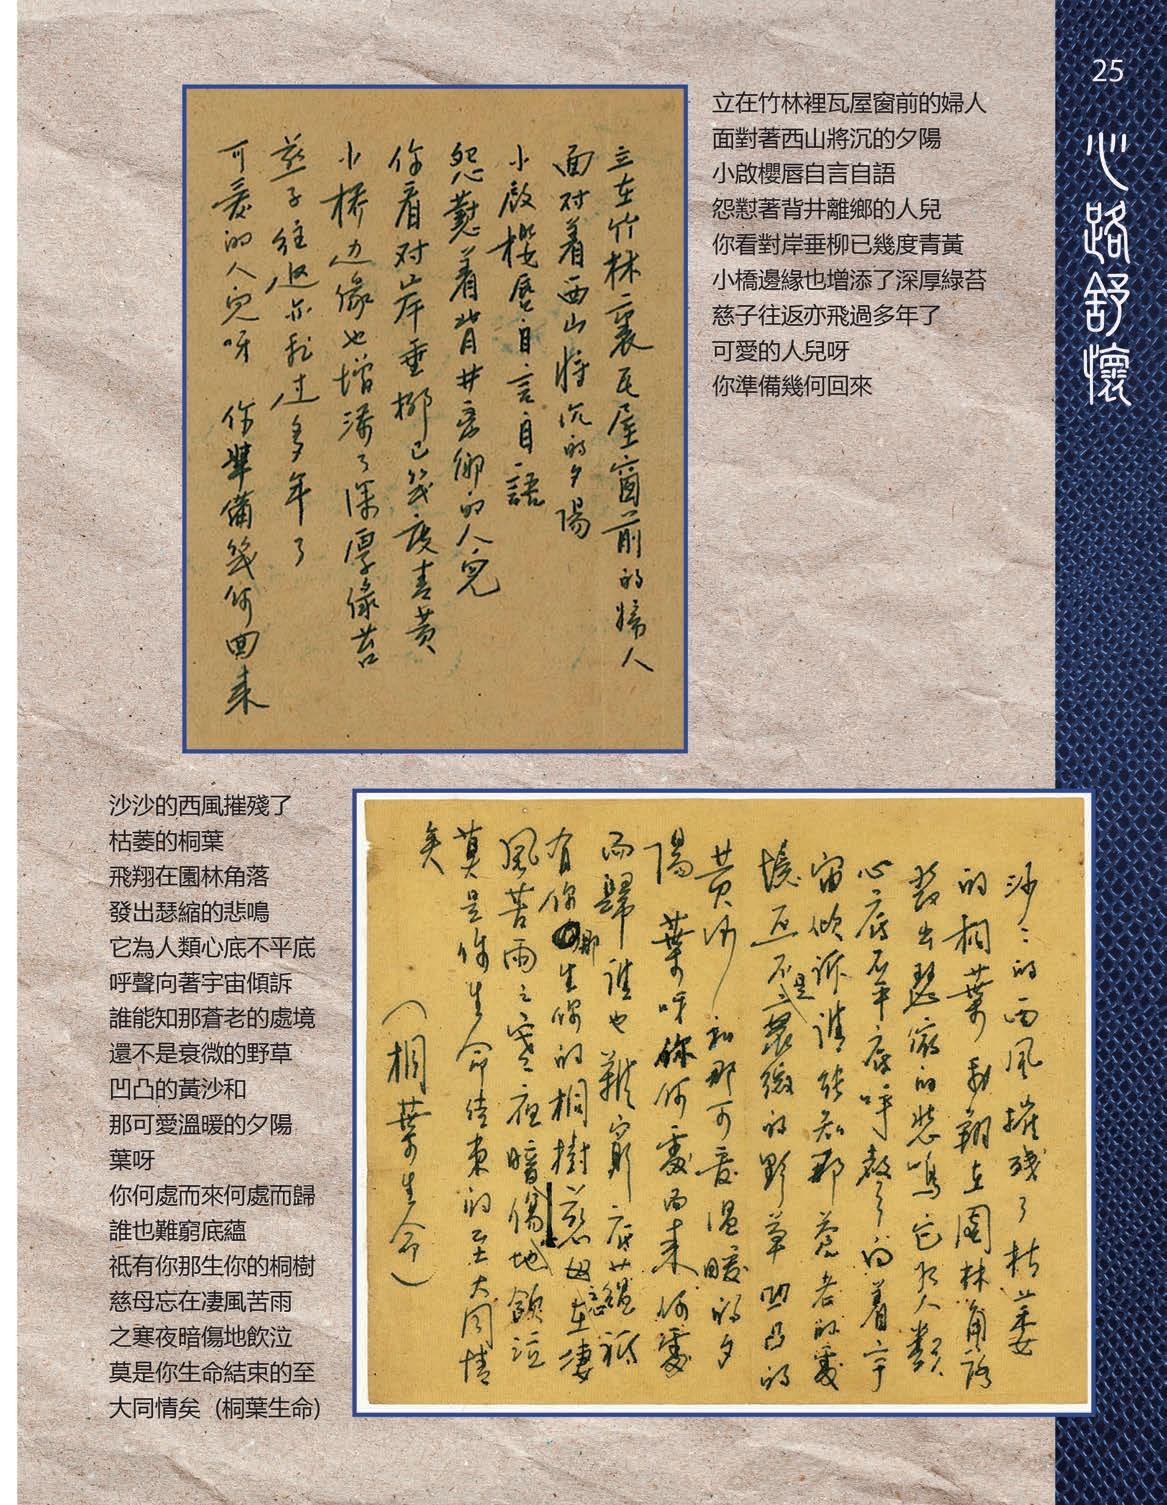 25
心路舒懷
立在竹林裡瓦屋窗前的婦人
面對著西山將沉的夕陽
小啟櫻唇自言自語
怨懟著背井離鄉的人兒
你看對岸垂柳已幾度青黃
小橋邊緣也增添了深厚綠苔
慈子往返亦飛過多年了
可愛的人兒呀
你準備幾何回來
立在竹林裏瓦屋窗前的婦人
面对着西山將沉的夕陽
小啟櫻唇自言自語
怨懟着背井离鄉的人兒
你看对岸垂柳已幾度青黃
小橋边緣也增添了深厚綠苔
慈子往返亦飛过多年了
可愛的人兒呀 你準備幾何回来
沙沙的西風摧殘了
枯萎的桐葉
飛翔在園林角落
發出瑟縮的悲鳴
它為人類心底不平底
呼聲向著宇宙傾訴
誰能知那蒼老的處境
還不是衰微的野草
凹凸的黃沙和
那可愛溫暖的夕陽
葉呀
你何處而來何處而歸
誰也難窮底蘊
祗有你那生你的桐樹
慈母忘在凄風苦雨
之寒夜暗傷地飲泣
莫是你生命結束的至
大同情矣 (桐葉生命)
沙々的西風摧殘了枯萎
的桐葉飛翔在園林角落
發出瑟縮的悲鳴它为人類
心底不平底呼聲向着宇
宙傾訴誰能知那蒼老的處
境还不是衰微的野草凹凸的
黃沙和那可愛温暖的夕
陽 葉呀你何處而来何處
而歸誰也難窮底蘊祗
有你那生你的桐樹慈母忘在凄
風苦雨之寒夜暗傷地飲泣
莫是你生命结束的至大同情
矣
(桐葉生命)